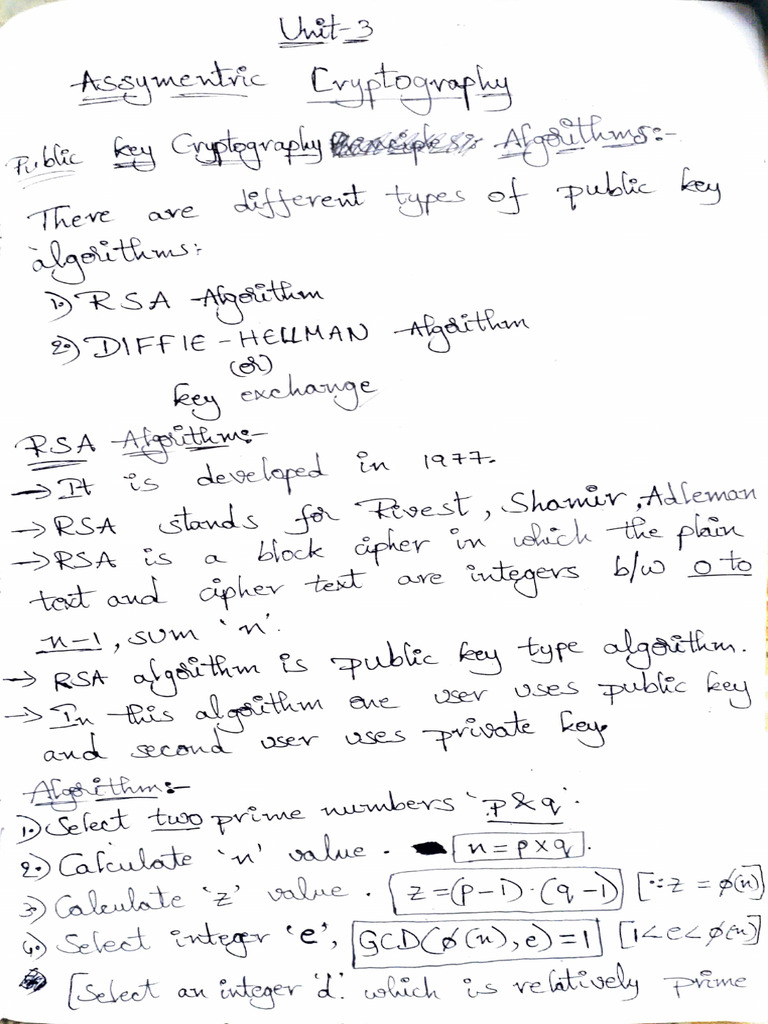 Unit-3
Assymentric Cryptography
Public key Cryptography Algorithms:-
There are different types of public key
algorithms:
1.) RSA Algorithm
2.) DIFFIE-HELLMAN Algorithm
(or)
key exchange
RSA Algorithm:-
→ It is developed in 1977.
→ RSA stands for Rivest, Shamir, Adleman
→ RSA is a block cipher in which the plain
text and cipher text are integers b/w 0 to
n-1, sum 'n'.
→ RSA algorithm is public key type algorithm.
→ In this algorithm one user uses public key
and second user uses private key.
Algorithm:-
1.) Select two prime numbers 'p & q'.
2.) Calculate 'n' value. n = p × q.
3.) Calculate 'z' value. z = (p-1)·(q-1) [∵ z = ϕ(n)]
4.) Select integer 'e', GCD(ϕ(n), e) = 1 [1<e<ϕ(n)]
[Select an integer 'd'. which is relatively prime